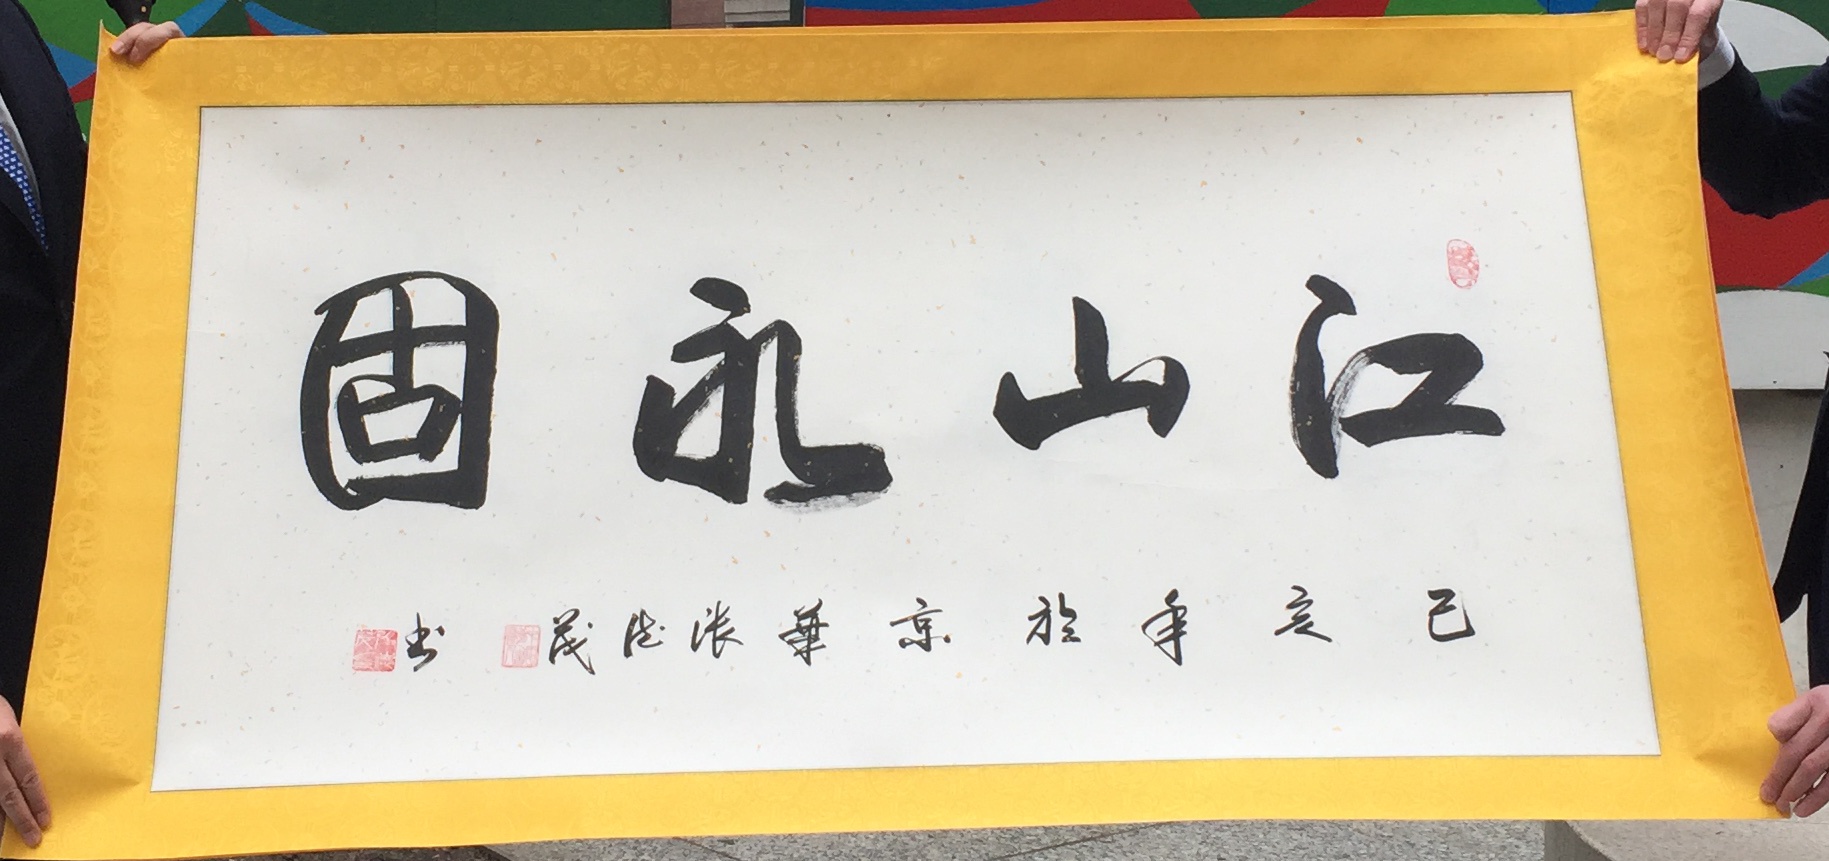 江山永固
己亥年於京華張德茂書